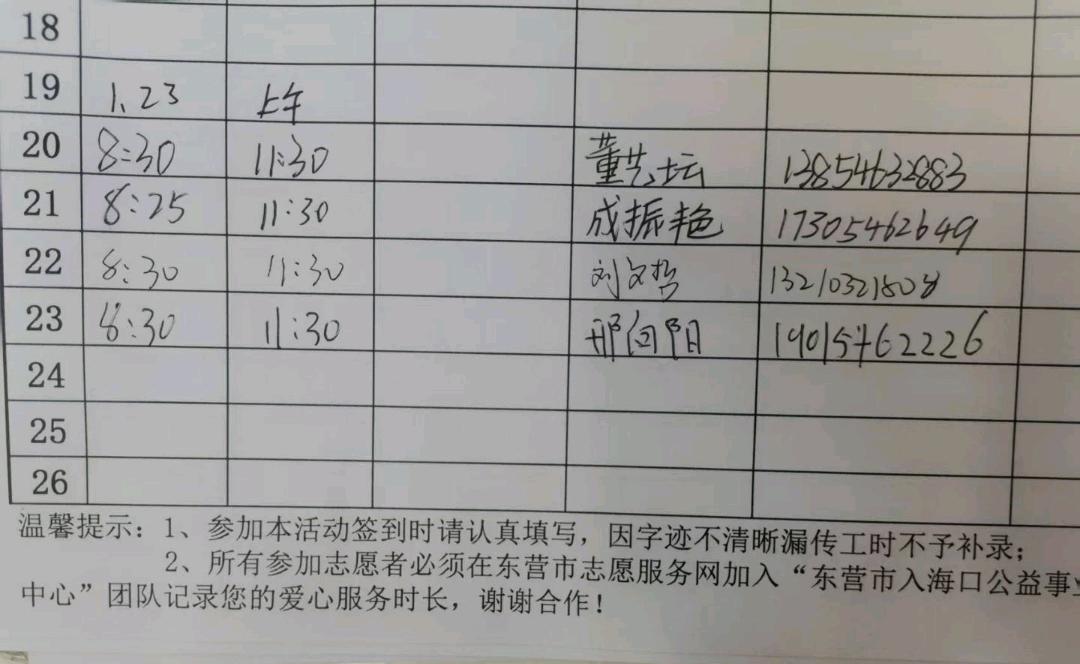 18
19 1.23 上午
20 8:30 11:30 董艺坛 13854632883
21 8:25 11:30 成振艳 17305462649
22 8:30 11:30 刘文哲 13210321808
23 8:30 11:30 邢向阳 19015462226
24
25
26
温馨提示：1、参加本活动签到时请认真填写，因字迹不清晰漏传工时不予补录；
2、所有参加志愿者必须在东营市志愿服务网加入“东营市入海口公益事业
中心”团队记录您的爱心服务时长，谢谢合作！